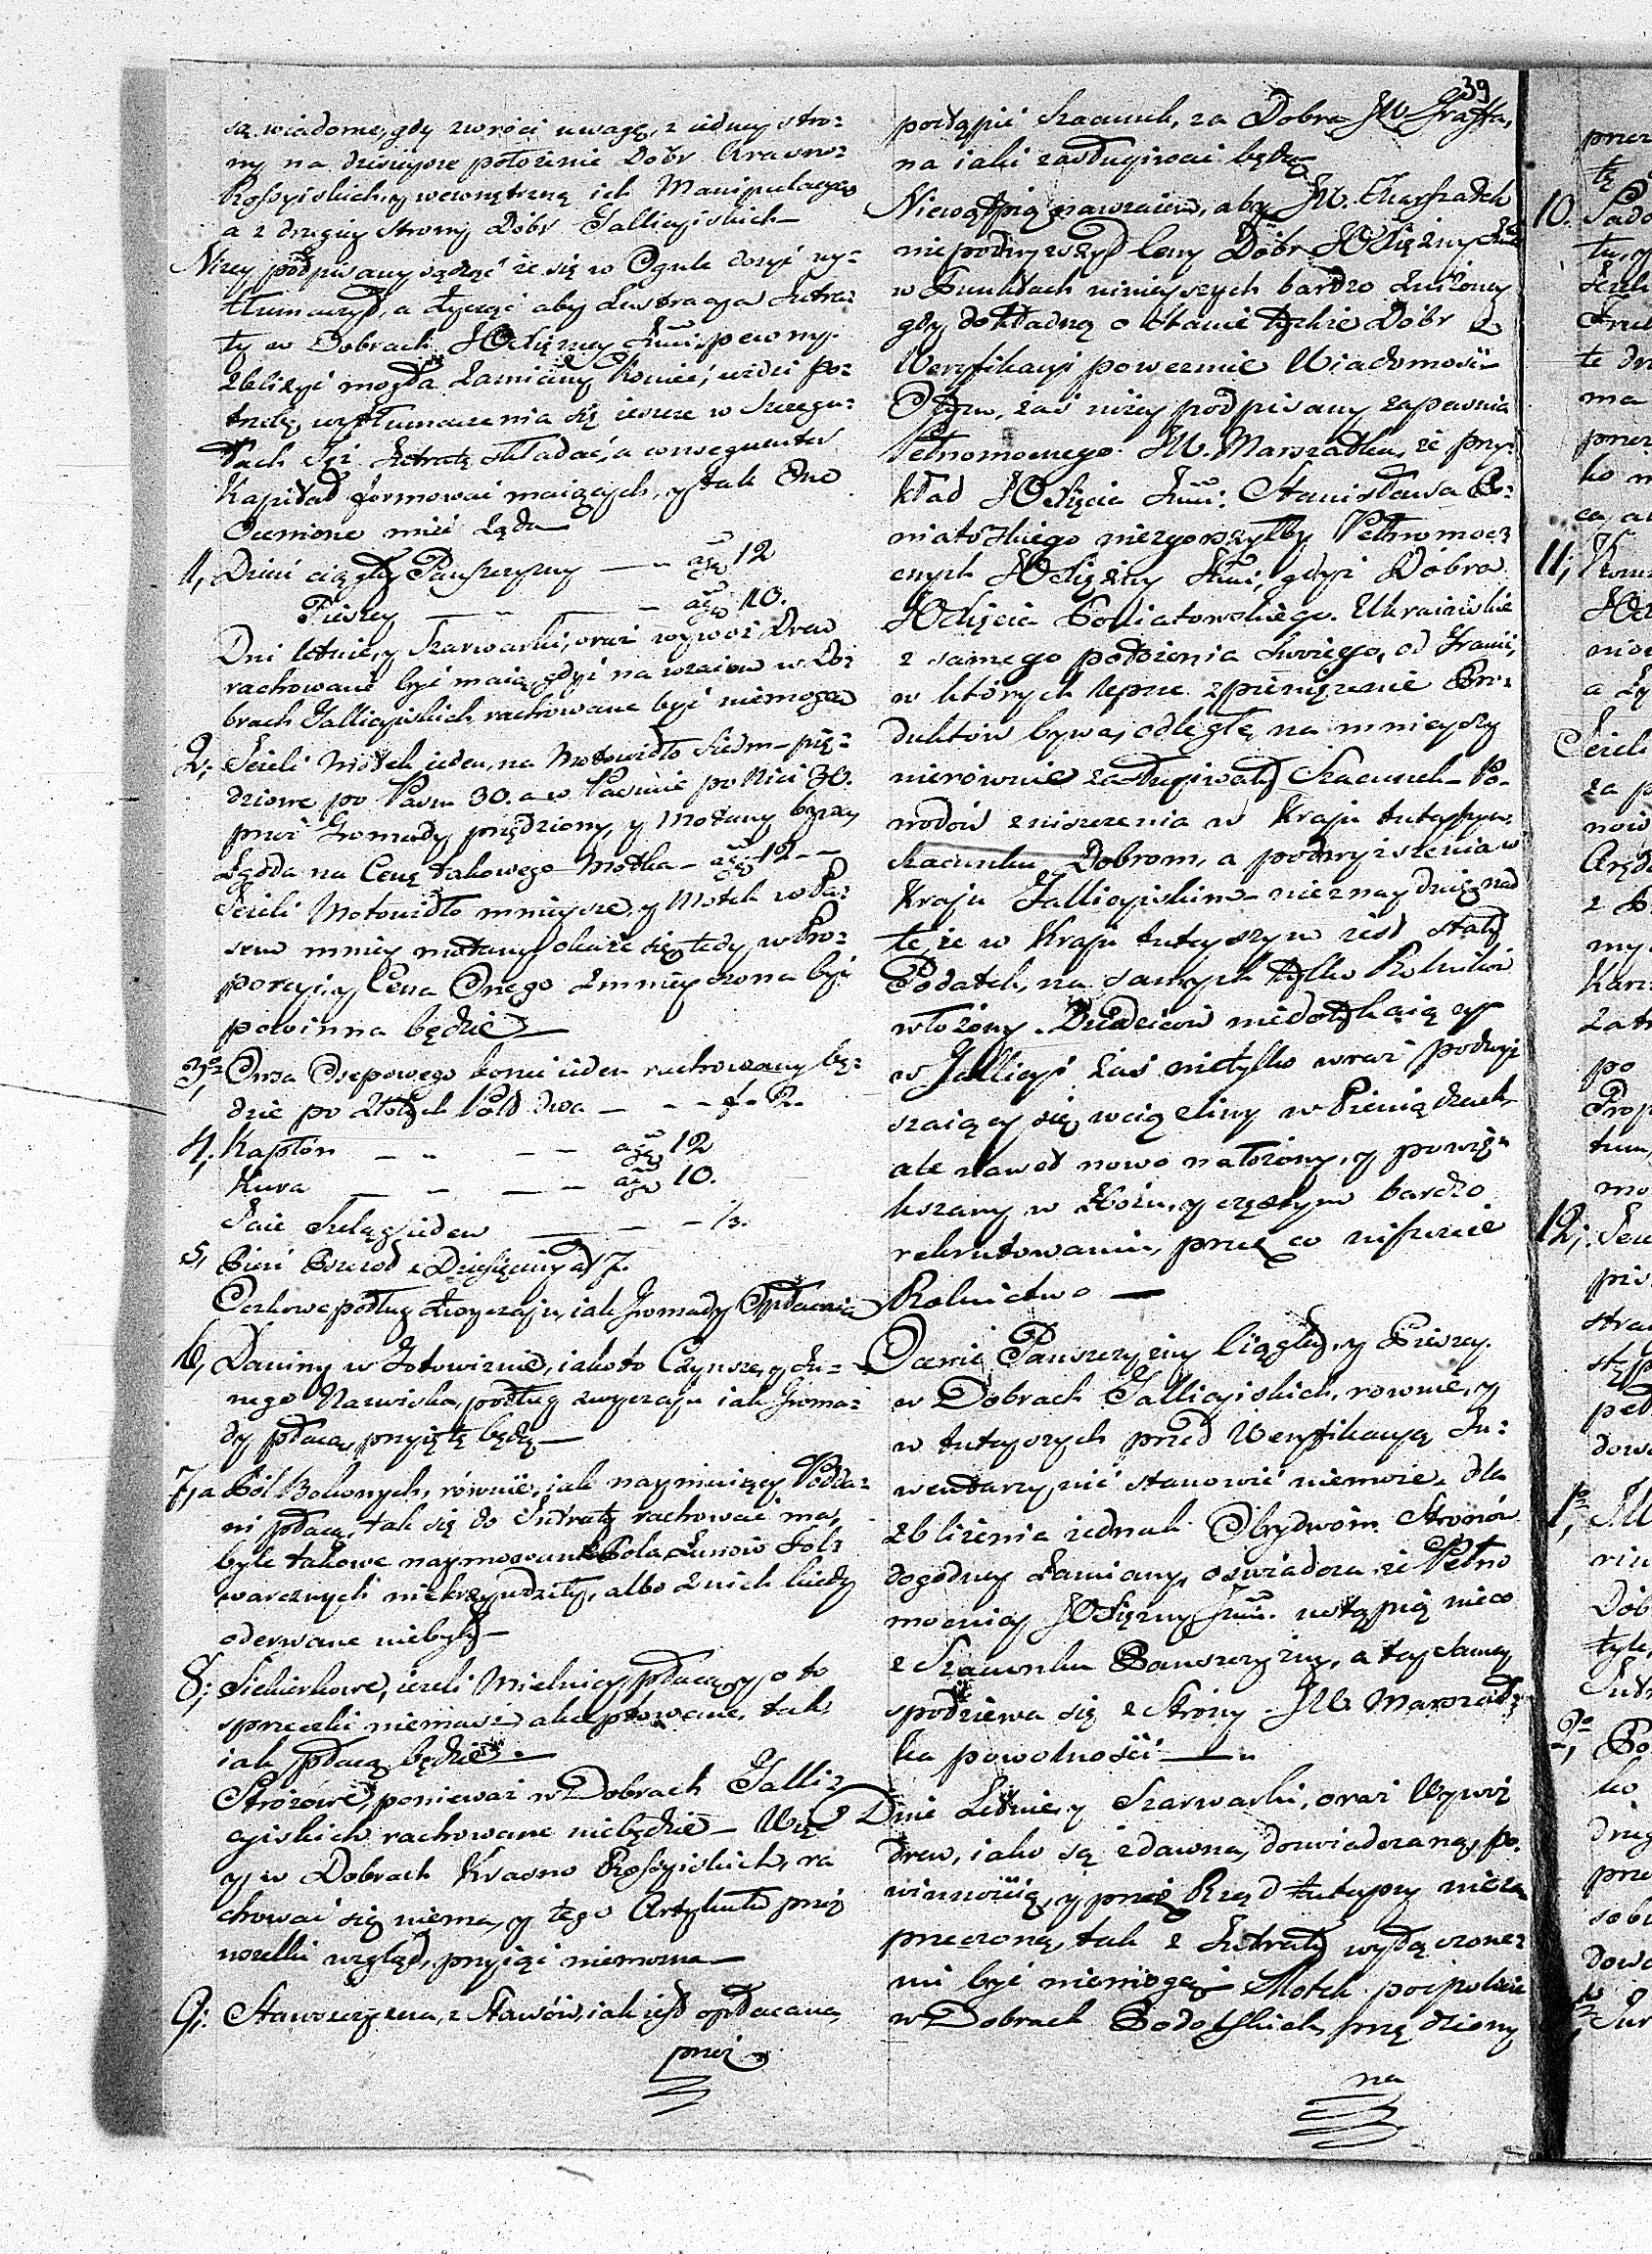 39
są wiadome, gdy zwróci uwagę, z iedney stro:
ny na dzisieysze położenie Dóbr Krasno:
Rossyiskich, y wewnętrzną ich Manipulacyą
a z drugiey strony Dóbr Gallicyiskich —
Niżey podpisany sądząc że się w Ogule dosyć wy:
tłumaczył, a życząc aby Lustracya Intra:
ty w Dobrach JOXiężny Jmci pewny
zbliżyć mogła Zamiany Koniec, widzi po:
trzebę wytłumaczenia się ieszcze w szczegu:
łach Jej Intratę składać, a consequenter
Kapitał formować maiących, y tak One
Ocenione mieć żąda —
1, Dzień ciągły Panszczyzny — 12
Pieszey — 10.
Dni letnie, y Szarwarki, oraz wywoz Drew
rachowane być maią, gdyż na wzaiem w Do:
brach Gallicyiskich rachowane być niemogą
2; Jeżeli Motek ieden, na Motowidło siedm-pię:
dziowe po Pasm 30. a w Paśmie po Nici 30.
przez Gromady przędziony, y Motany bywa,
Żąda na Cenę takowego Motka — 12 —
Jeżeli Motowidło mnieysze, y Motek w Pa:
sem mniey motany okaże się, tedy w Pro:
porcyi, y Cena Onego zmnieyszona być
powinna będzie —
3, Owsa Osepowego korzec ieden rachowany bę:
dzie po Złotych Pols dwa — f. 2.
4, Kapłon — 12
Kura — 10.
Jaie Szeląg ieden — /3.
5, Pień Pszczoł z Dziesięciny a 7.
Oczkowe podług Zwyczaju, iak Gromady Opłacaią
6, Daniny w Gotowiznie, iako to Czynsze, y In:
nego Nazwiska, podług zwyczaju iak Groma:
dy płacą, przyięte będą —
7, a Pól Bokowych, równie, iak naymuiący Podda:
ni płacą, tak się do Intraty rachować ma,
byle takowe naymowanie Pola, Łanow Fol:
warcznych niekrzywdziły, albo z nich kiedy
oderwane niebyły —
8; Siekierkowe, ieżeli Mielnicy płacą, y o to
sprzeczki niemasz, akceptowane, tak
iak płacą będzie —
Strożowe, ponieważ w Dobrach Galli:
cyiskich rachowane niebędzie — Więc
y w Dobrach Krasno Rossyiskich, ra
chować się niema, y tego Artykułu przez
wszelki wzgląd, przyiąć niemożna —
9; Stawszczyzna, z Stawów, iak iest opłacana,
przez
postąpić szacunek, za Dobra JW. Graffa,
na iaki zasługiwać będą
Niewątpią nawzaiem, aby JW. Marszałek
niepodwyższył Ceny Dóbr JOXiężny Jmci
w Punktach ninieyszych bardzo zniżoney
gdy dokładną o Stanie tychże Dóbr z
Weryfikacyi powezmie Wiadomość —
O tym, zaś niżey podpisany zapewnia
Pełnomocnego JW. Marszałka, że przy:
kład JOXięcia Jmci Stanisława Po:
niatowskiego niezgorszyłby Pełnomoc:
cnych JOXiężny Jmci, gdyż Dobra
JOXięcia Poniatowskiego Ukrainskie
z samego położenia swoiego, od Granic,
w których lepsze spieniężenie Pro:
duktow bywa, odległe, na mnieyszy
nierównie zasługiwały Szacunek — Po:
wodów zniszczenia w Kraju tuteyszym
szacunku Dobrom, a podwyższenia w
Kraju Gallicyiskim — nieznayduię, nad
te, że w Kraju tuteyszym iest stały
Podatek, na samych tylko Rolnikow
włożony. Dziedzicow niedotykaiący
w Gallicyi zaś nietylko wraz podwyż
szaiący się, wciąż liczny w Pieniądzach
ale nawet nowo nałożony, y powię:
kszany w Zbożu, y częstym bardzo
rekrutowaniu, przez co niszczeie
Rolnictwo —
Ocenić Panszczyzny Ciągłey, y Pieszey
w Dobrach Gallicyiskich, rownie, y
w tuteyszych przed Weryfikacyą In:
wentarzy, nic stanowić niemoże, dla
zbliżenia iednak Obydwom Stronom
dogodney Zamiany, oswiadcza, że Pełno
mocnicy JOXiężny Jmci ustąpią nieco
z Szacunku Panszczyzny, a tey samey
spodziewa się z Strony JW. Marszał:
ka powolności —
Dnie Letnie, y Szarwarki, oraz Wywoż
drew, iako są z dawna, doswiadczaną, po:
winnością, y przez Rząd tuteyszy nieza
przeczoną, tak z Intraty wyłączone:
mi być niemogą — Motek pospolicie
w Dobrach Podolskich, przędziony
na
10.
11;
12;